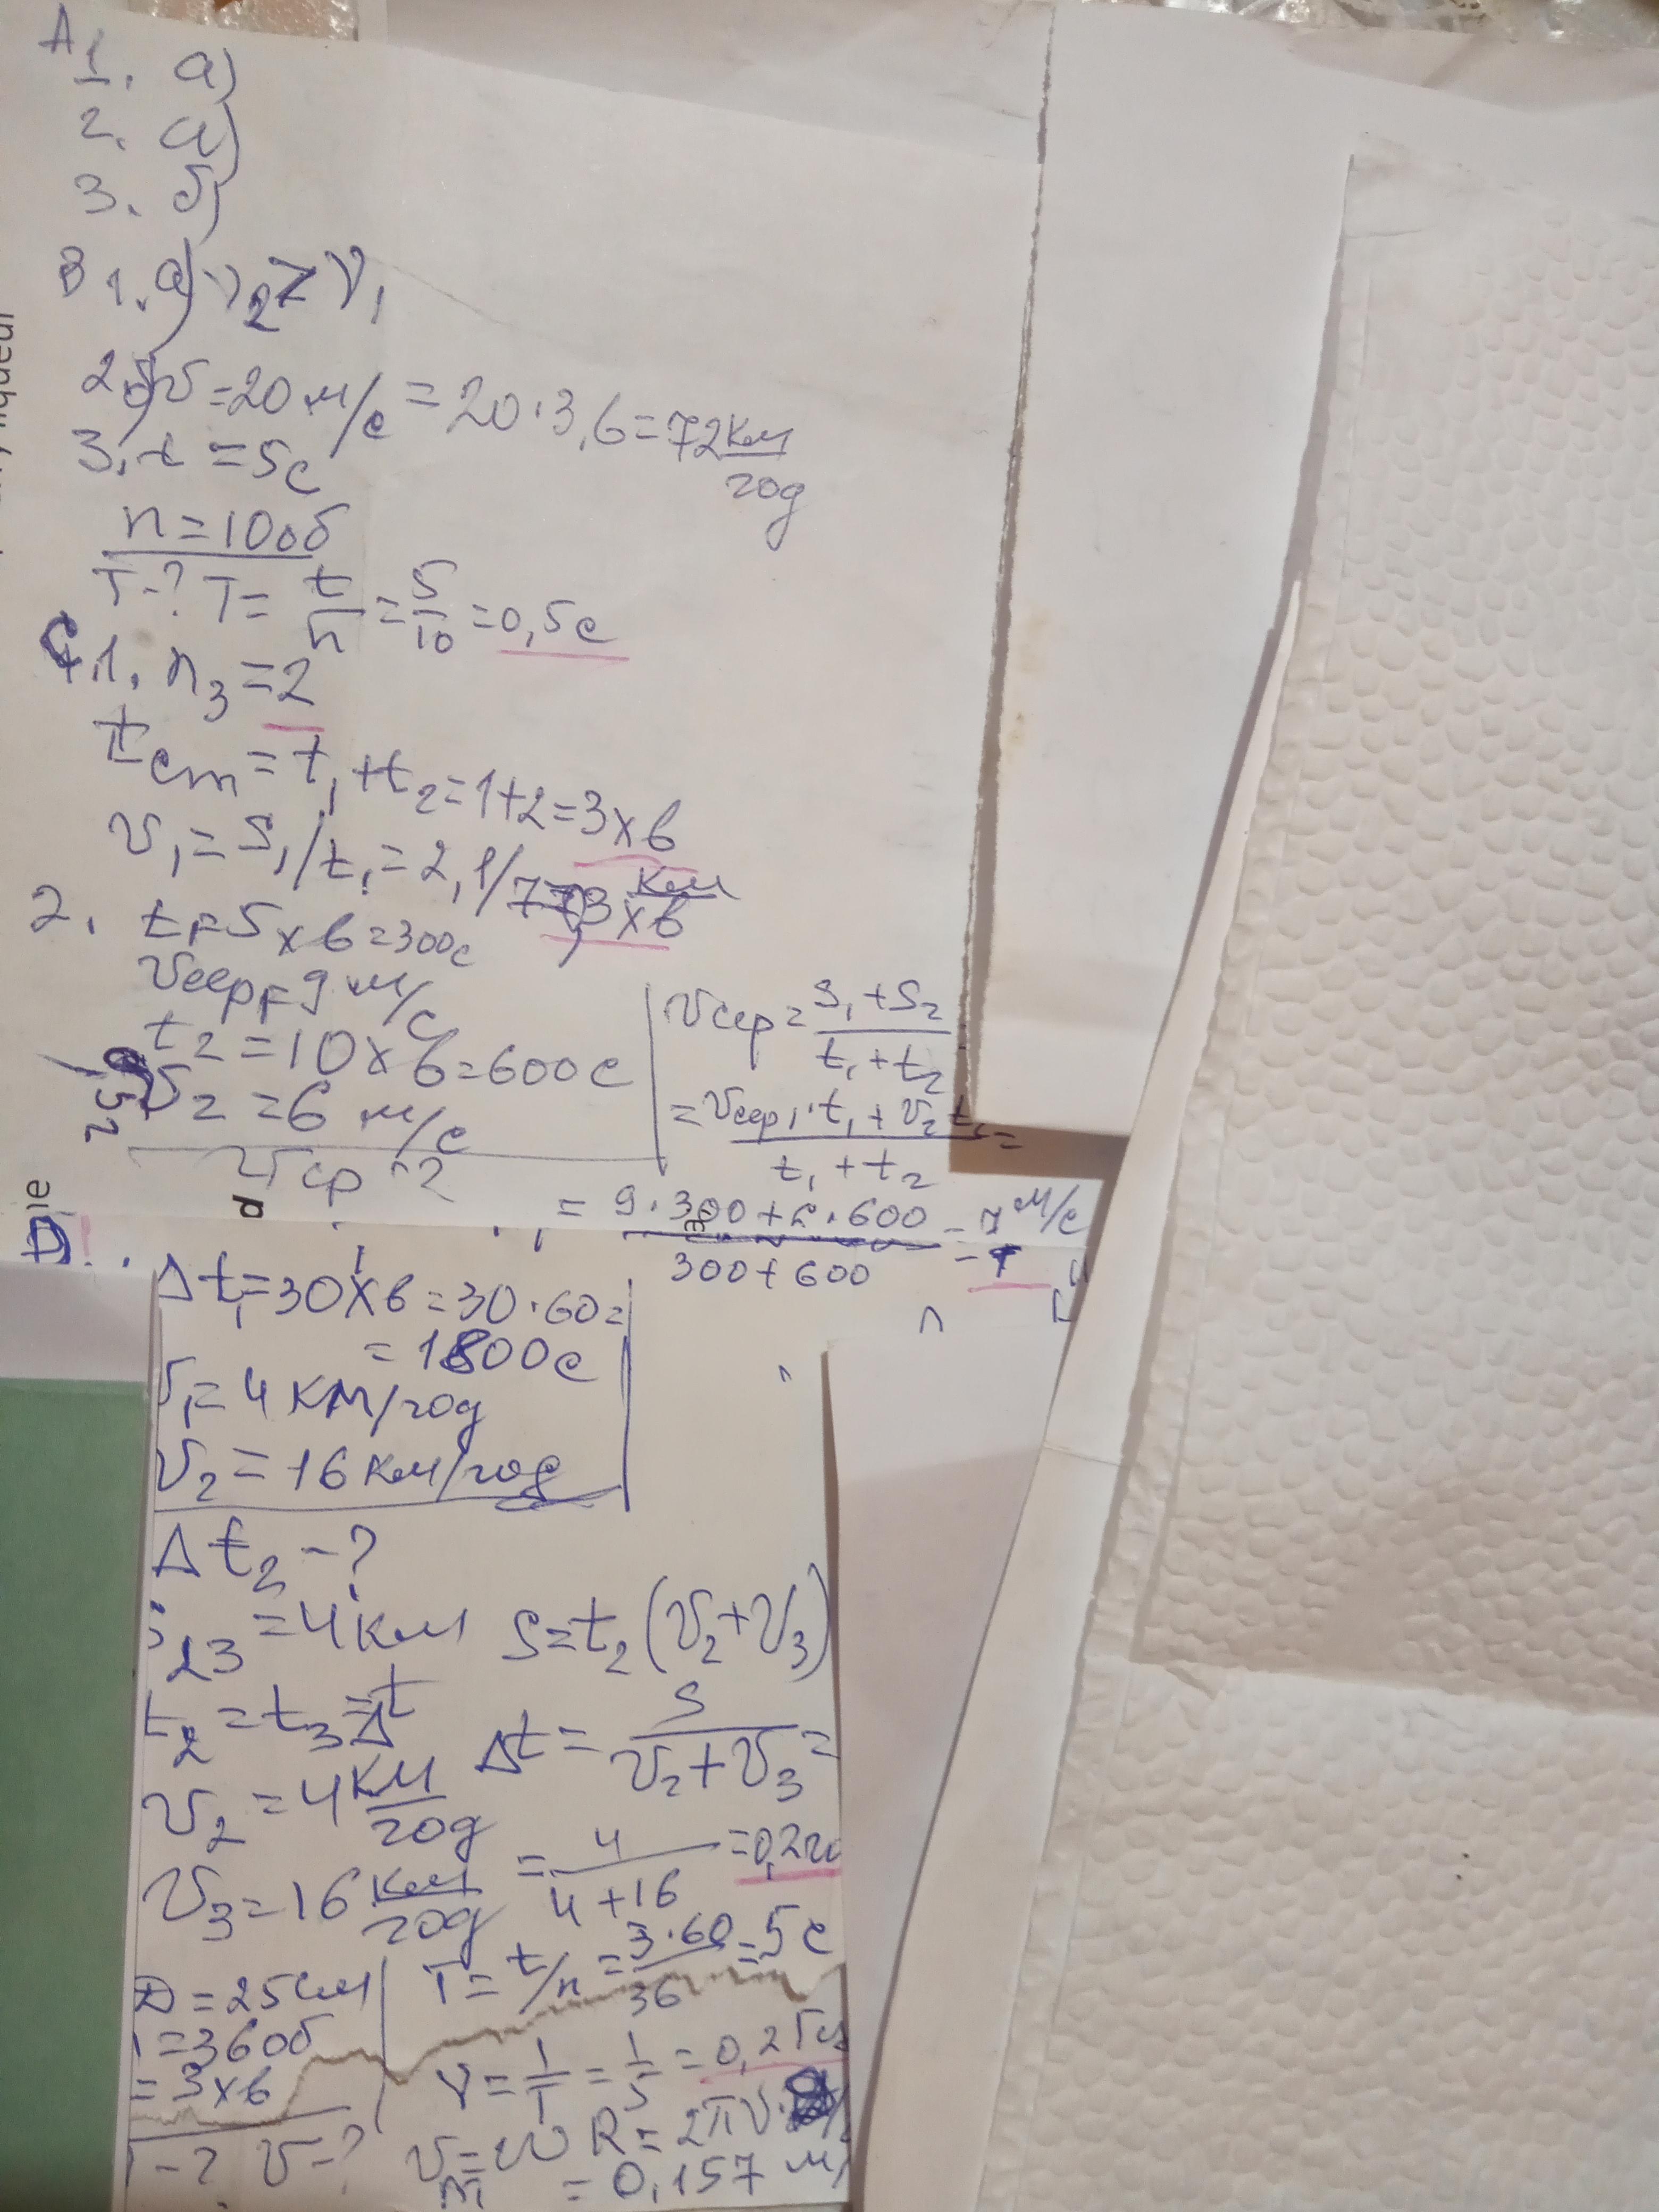 A 1. а)
2. а)
3. б)
B 1. а) v₂ > v₁
2. б) v = 20 м/с = 20·3,6 = 72 км/год
3. t = 5с
n = 10об
T-? T = t/n = 5/10 = 0,5с
C 1. n₃ = 2
t ст = t₁ + t₂ = 1+2 = 3хв
v₁ = S₁/t₁ = 2,1/7 = 0,3 км/хв
2. t₁ = 5хв = 300с
vсер₁ = 9 м/с
t₂ = 10хв = 600с
v₂ = 6 м/с
vср -?
vсер = (S₁ + S₂)/(t₁ + t₂)
= (vсер₁·t₁ + v₂t₂)/(t₁ + t₂) =
= (9·300 + 6·600)/(300 + 600) = 7 м/с
Δt₁ = 30хв = 30·60 =
= 1800с
v₁ = 4 км/год
v₂ = 16 км/год
Δt₂ - ?
₂₃ = 4км S = t₂(v₂ + v₃)
t₂ = t₃ = Δt
Δt = S/(v₂ + v₃) =
v₂ = 4 км/год
= 4/(4+16) = 0,2 го
v₃ = 16 км/год
D = 25см T = t/n = 3·60/36 = 5с
= 36об
= 3хв ν = 1/T = 1/5 = 0,2 Гц
-? v-? v = ωR = 2πν
= 0,157 м/
die
liqueur